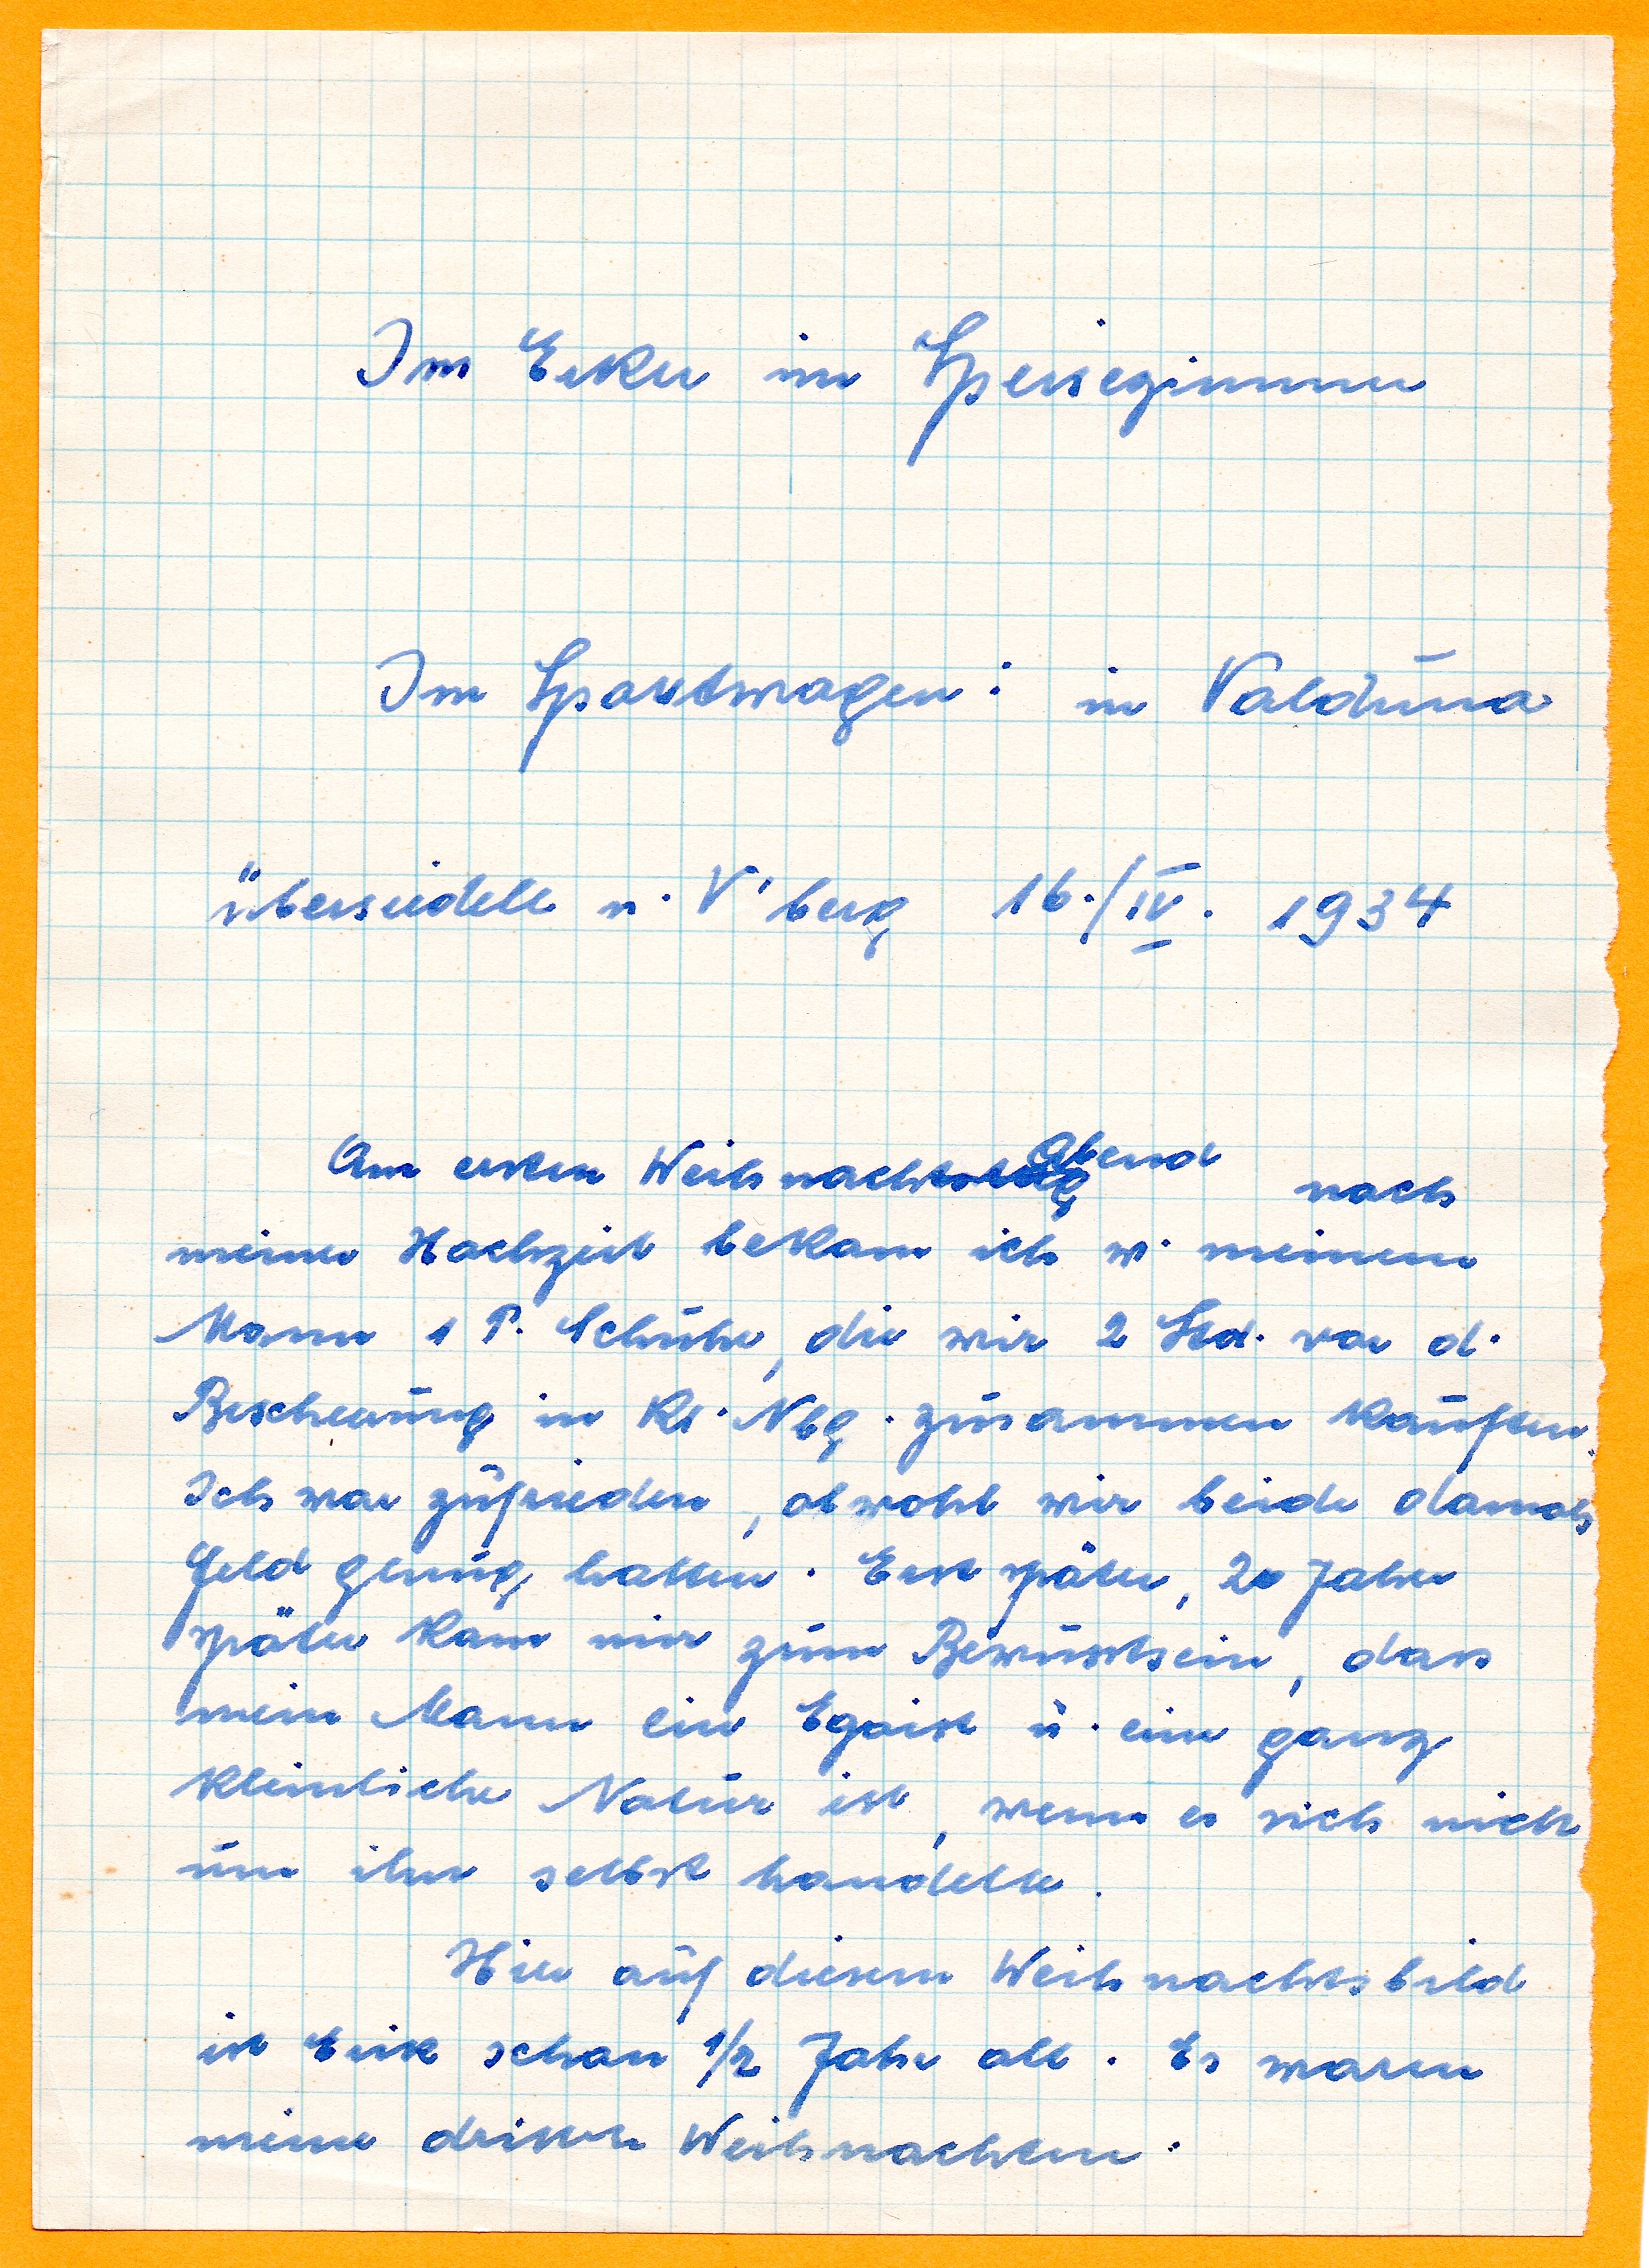 Im Erker im Speisezimmer
Im Sportwagen: in Valduna
übersiedelt n. V'berg 16./IV. 1934
Am ersten Weihnachtstag Abend nach
meiner Hochzeit bekam ich v. meinem
Mann 1 P. Schuhe, die wir 2 Std. vor d.
Bescherung in Kl. Nbg. zusammen kauften.
Ich war zufrieden, obwohl wir beide damals
Geld genug hatten. Erst später, 20 Jahre
später kam mir zum Bewusstsein, dass
mein Mann ein Egoist u. eine ganz
kleinliche Natur ist, wenn es sich nicht
um ihn selbst handelte.
Hier auf diesem Weihnachtsbild
ist Erik schon 1/2 Jahr alt. Es waren
meine dritten Weihnachten.